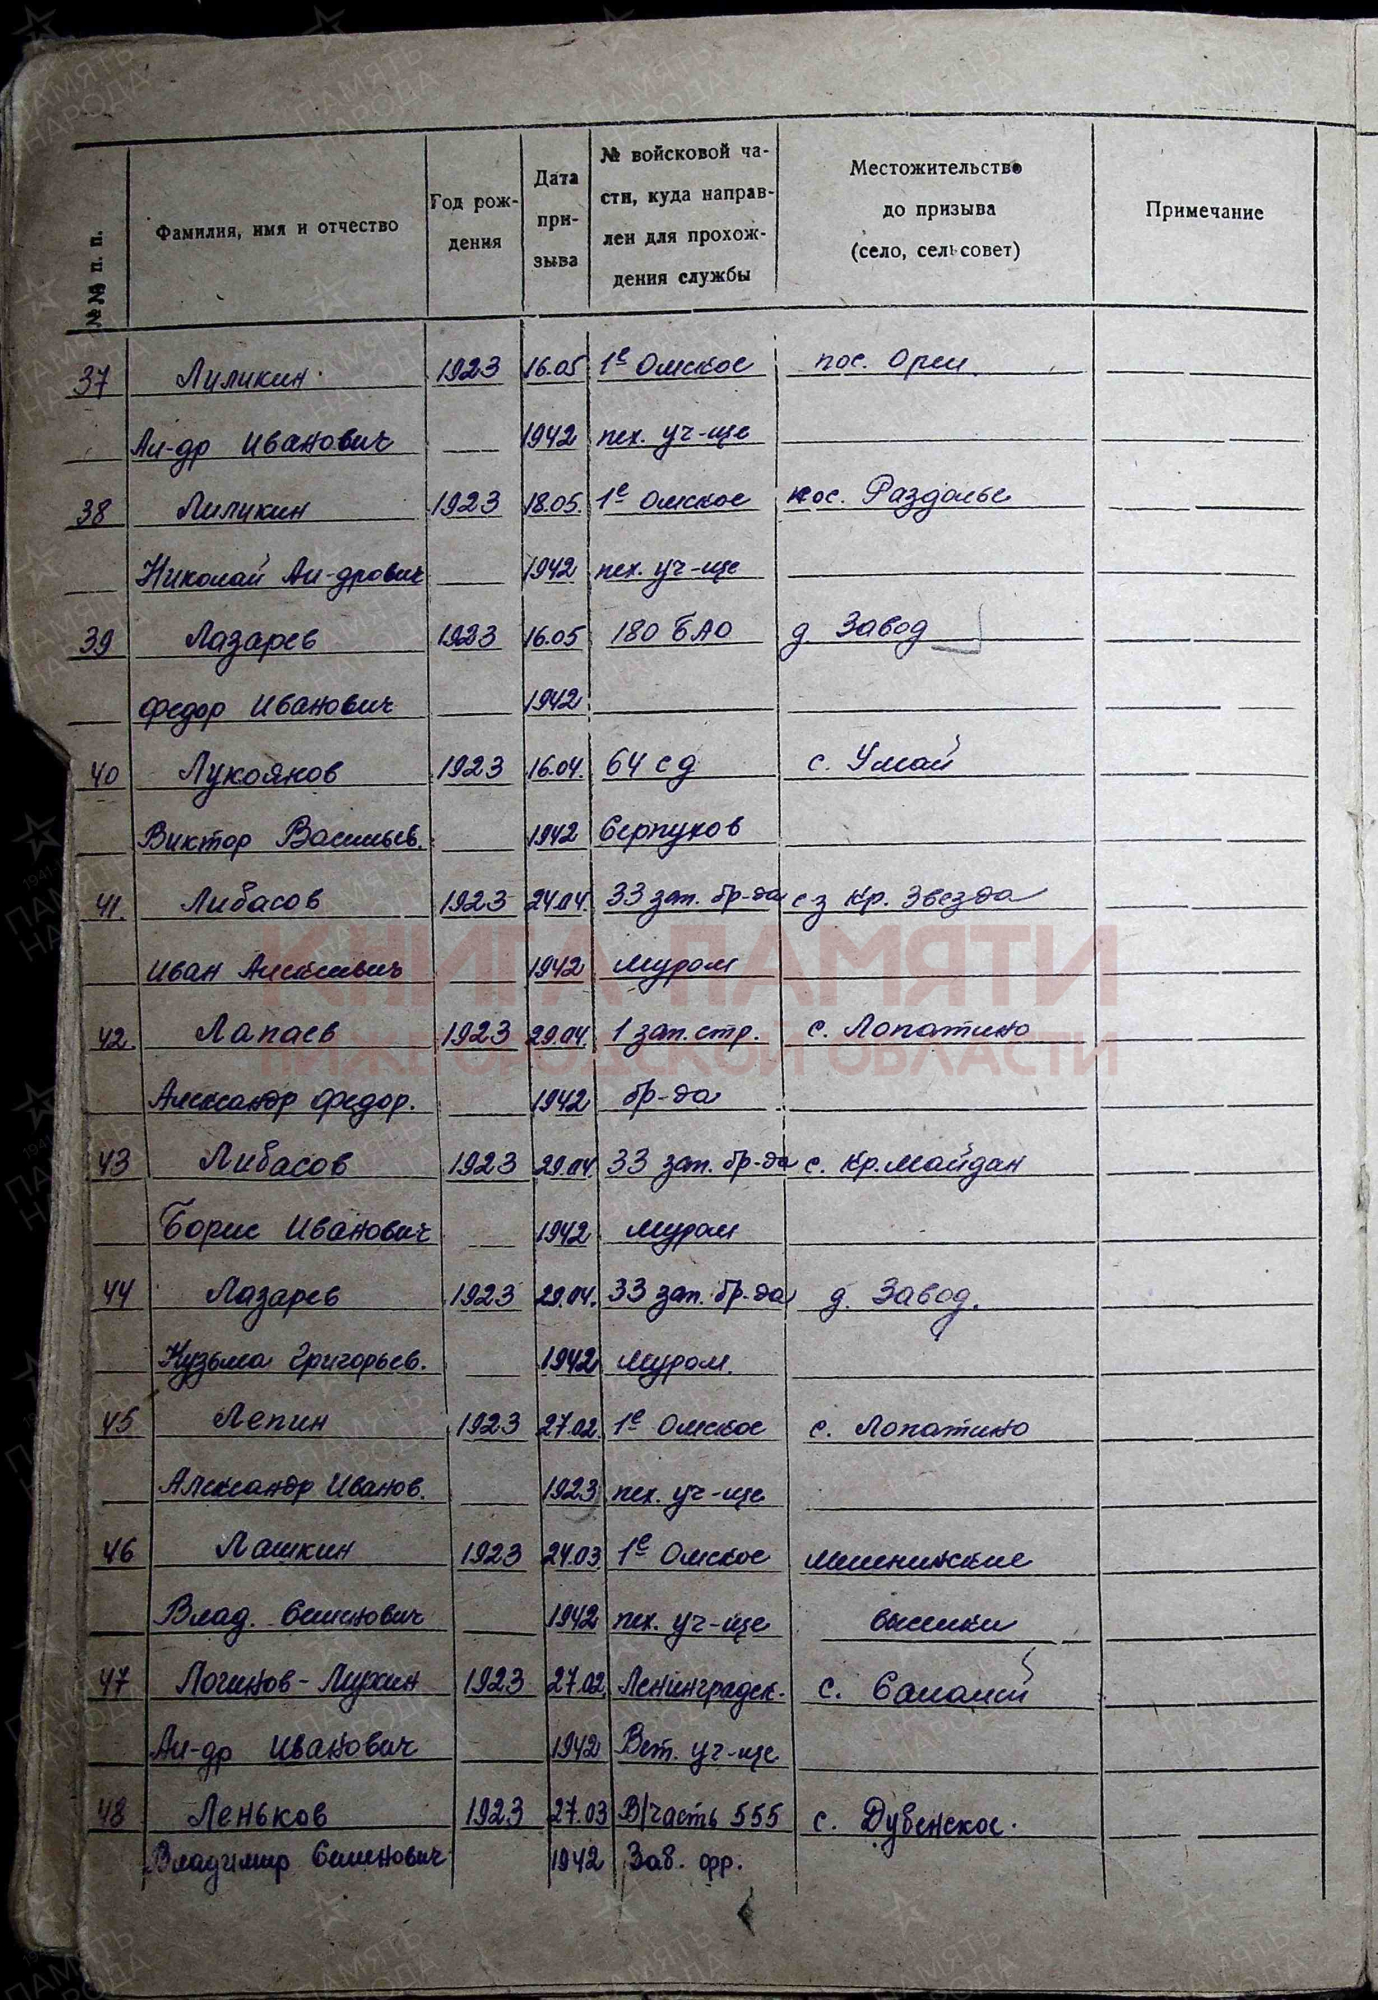 №№ п. п. Фамилия, имя и отчество Год рождения Дата призыва № войсковой части, куда направлен для прохождения службы Местожительство до призыва (село, сельсовет) Примечание
37 Лиликин 1923 16.05 1е Омское пос. Орли.
Ал-др Иванович 1942 пех. уч-ще
38 Лиликин 1923 18.05. 1е Омское пос. Раздолье
Николай Ал-дрович 1942 пех. уч-ще
39 Лазарев 1923 16.05 180 БАО д Завод
Федор Иванович 1942
40 Лукоянов 1923 16.04. 64 сд с. Умай
Виктор Васильев. 1942 Серпухов
41. Либасов 1923 24.04. 33 зап. бр-да с-з Кр. Звезда
Иван Алексеевич 1942 Муром
42. Лапаев 1923 29.04. 1 зап. стр. с. Лопатино
Александр Федор. 1942 бр-да
43 Либасов 1923 29.04 33 зап. бр-да с. Кр. Майдан
Борис Иванович 1942 Муром
44 Лазарев 1923 29.04. 33 зап. бр-да д. Завод.
Кузьма Григорьев. 1942 Муром.
45 Лепин 1923 27.02. 1е Омское с. Лопатино
Александр Иванов. 1923 пех. уч-ще
46 Лашкин 1923 24.03 1е Омское
Влад. Семенович 1942 пех. уч-ще выселки
47 Логинов-Лухин 1923 27.02 Ленинградск. с. Салалей
Ал-др Иванович 1942 Вет. уч-ще
48 Леньков 1923 27.03 В/часть 555 с. Дубенское.
Владимир Семенович 1942 Зап. фр.
КНИГА ПАМЯТИ
НИЖЕГОРОДСКОЙ ОБЛАСТИ
ПАМЯТЬ НАРОДА